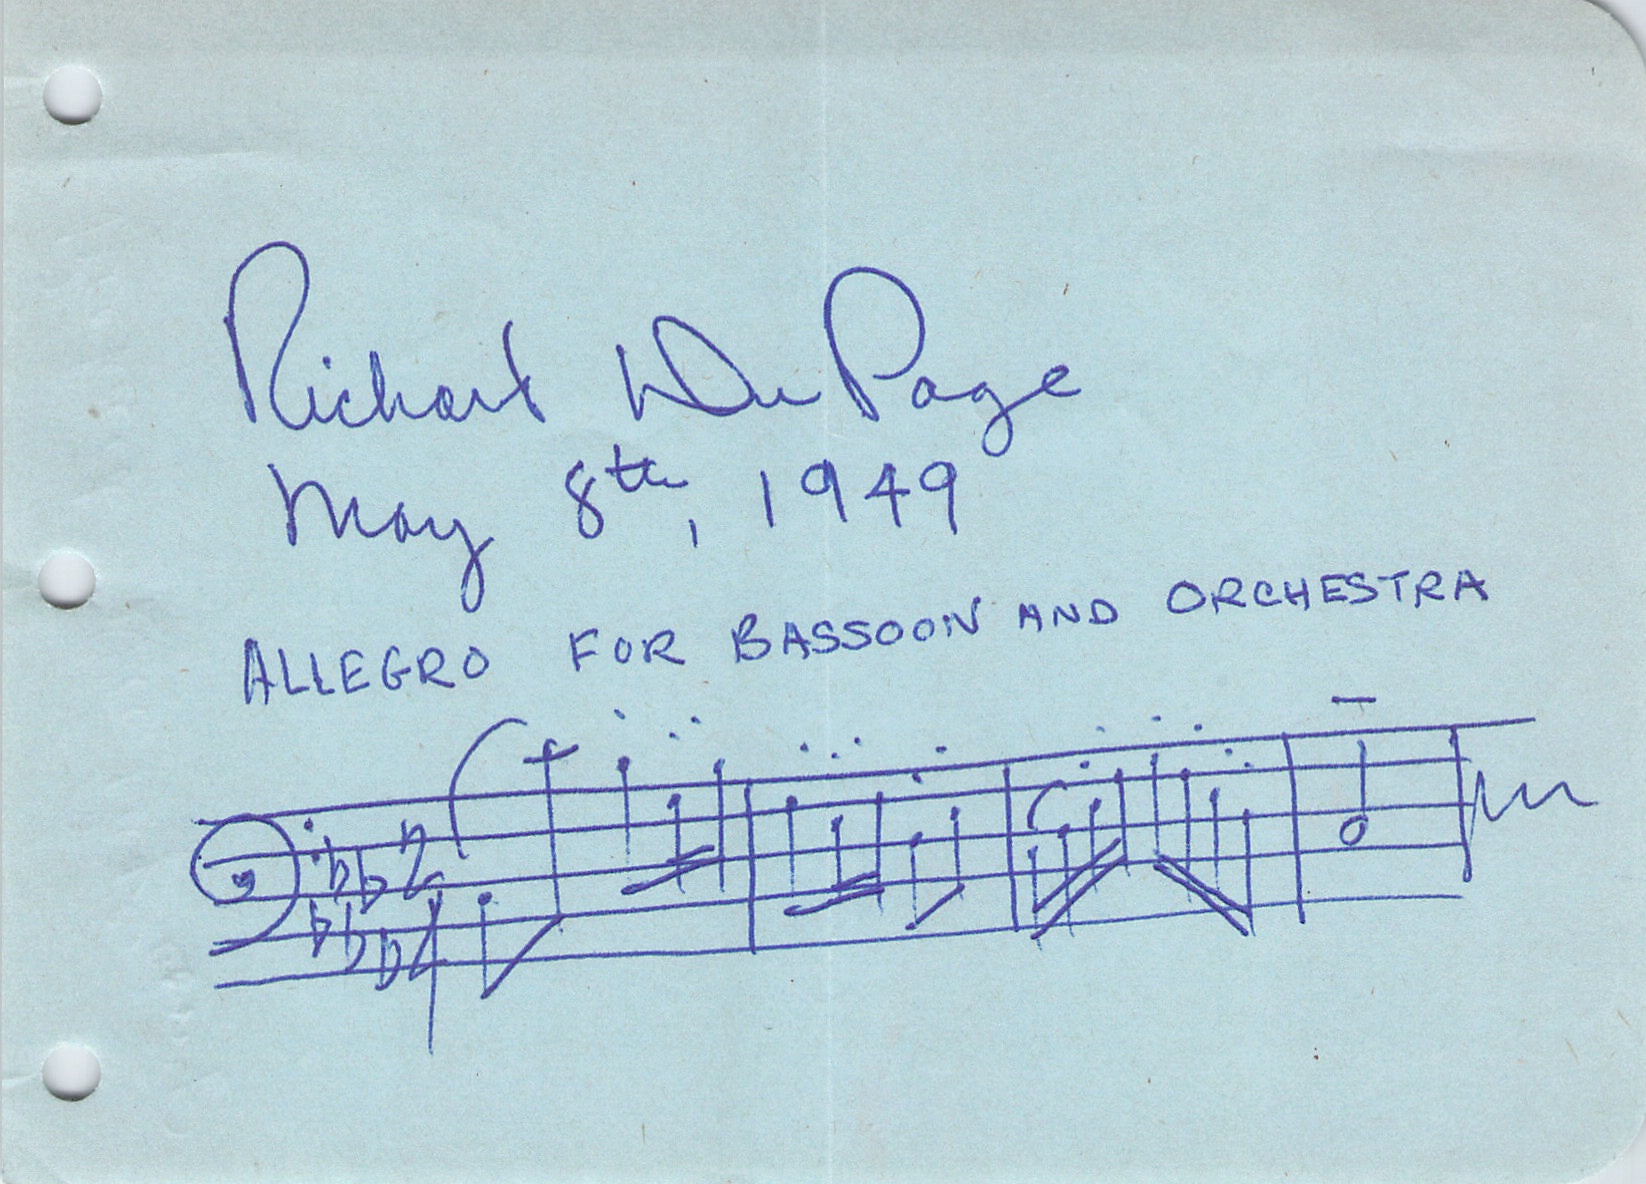 Richard DuPage
May 8th, 1949
ALLEGRO FOR BASSOON AND ORCHESTRA
2
4